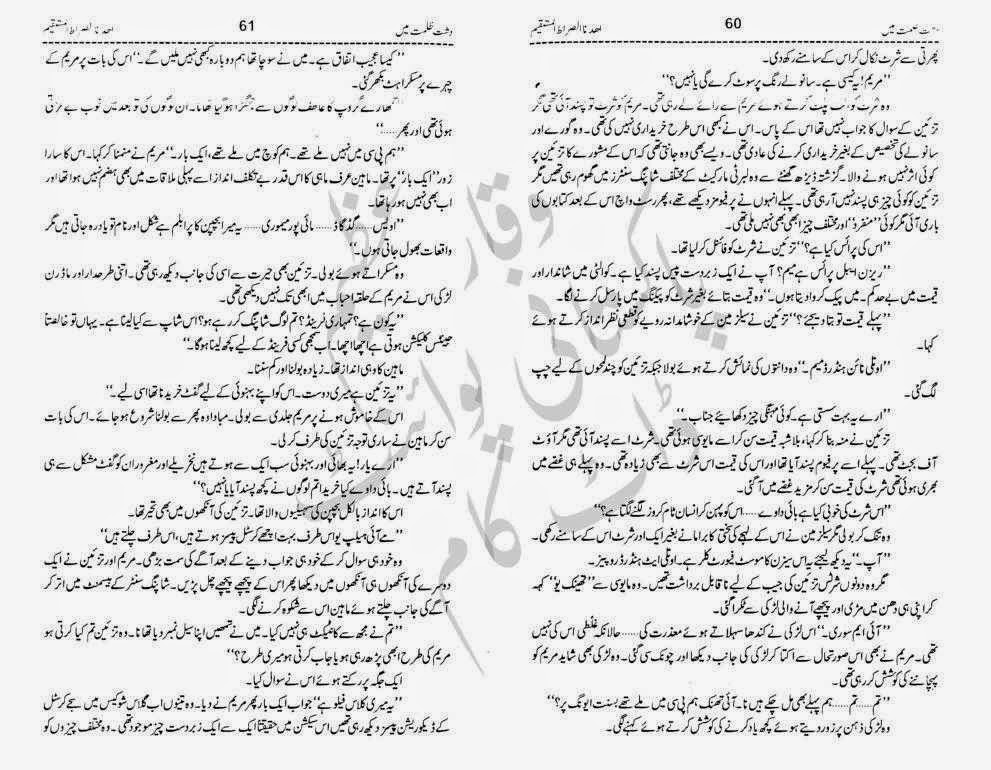 60
اھدنا الصراط المستقیم
پھرتی سے شرٹ نکال کر اس کے سامنے رکھ دی۔
’’مریم! کیسی ہے۔ سانولے رنگ پر سوٹ کرے گی یا نہیں؟‘‘
وہ شرٹ کو الٹ پلٹ کرتے ہوئے مریم سے رائے لے رہی تھی۔ مریم کو شرٹ تو پسند آئی تھی مگر
تزئین کے سوال کا جواب نہیں تھا اس کے پاس۔ اس نے کبھی اس طرح خریداری نہیں کی تھی۔ وہ گورے اور
سانولے کی تخصیص کے بغیر خریداری کرنے کی عادی تھی۔ ویسے بھی وہ جانتی تھی کہ اس کے مشورے کا تزئین پر
کوئی اثر نہیں ہونے والا۔ گزشتہ ڈیڑھ گھنٹے سے وہ لبرٹی مارکیٹ کے مختلف شاپنگ سنٹرز میں گھوم رہی تھیں مگر
تزئین کو کوئی چیز ہی پسند نہیں آ رہی تھی۔ پہلے انہوں نے پرفیومز دیکھے تھے، پھر رسٹ واچ اس کے بعد کتابوں کی
باری آئی مگر کوئی ’’منفرد‘‘ اور مختلف چیز ابھی بھی نہیں ملی تھی۔
’’اس کی پرائس کیا ہے؟‘‘ تزئین نے شرٹ کو فائنل کر لیا تھا۔
’’ریزن ایبل پرائس ہے میم؟ آپ نے ایک زبردست پیس پسند کیا ہے۔ کوالٹی میں شاندار اور
قیمت میں بے حد کم۔ میں پیک کروا دیتا ہوں۔‘‘ وہ قیمت بتائے بغیر شرٹ کو پیکنگ میں پارسل کرنے لگا۔
’’پہلے قیمت تو بتا دیجئے؟‘‘ تزئین نے سیلز مین کے خوشامدانہ رویے کو قطعی نظر انداز کرتے ہوئے
کہا۔
’’اونلی نائن ہنڈرڈ میم۔‘‘ وہ دانتوں کی نمائش کرتے ہوئے بولا جبکہ تزئین کو چند لمحوں کے لیے چپ
لگ گئی۔
’’ارے یہ بہت سستی ہے۔ کوئی مہنگی چیز دکھائیے جناب۔‘‘
تزئین نے منہ بنا کر کہا، بلاشبہ قیمت سن کر اسے مایوسی ہوئی تھی۔ شرٹ اسے پسند آئی تھی مگر آؤٹ
آف بجٹ تھی۔ پہلے اسے پرفیوم پسند آیا تھا اور اس کی قیمت اس شرٹ سے بھی زیادہ تھی۔ وہ پہلے ہی غصے میں
بھری ہوئی تھی شرٹ کی قیمت سن کر مزید غصے میں آ گئی۔
’’اس شرٹ کی خوبی کیا ہے بائی داوے...... اس کو پہن کر انسان ٹام کروز لگنے لگتا ہے؟‘‘
وہ تنک کر بولی مگر سیلز مین نے اس کے لہجے کی تلخی کا برا مانے بغیر ایک اور شرٹ اس کے سامنے رکھی۔
’’آپ‘‘ یہ دیکھ لیجئے یہ اس سیزن کا موسٹ فیورٹ کلر ہے۔ اونلی ایٹ ہنڈرڈ روپیز۔
مگر وہ دونوں شرٹس تزئین کی جیب کے لیے ناقابل برداشت تھیں۔ وہ مایوسی سے ’’تھینک یو‘‘ کہہ
کر اپنی ہی دھن میں مڑی اور پیچھے آنے والی لڑکی سے ٹکرا گئی۔
’’آئی ایم سوری۔‘‘ اس لڑکی نے کندھا سہلاتے ہوئے معذرت کی...... حالانکہ غلطی اس کی نہیں
تھی۔ مریم نے بھی اس صورتحال سے اکتا کر لڑکی کی جانب دیکھا اور چونک سی گئی۔ وہ لڑکی بھی شاید مریم کو
پہچاننے کی کوشش کر رہی تھی۔
’’تم...... تم...... ہم پہلے بھی مل چکے ہیں نا۔ آئی تھنک ہم پی سی میں ملے تھے بسنت ایونگ پر؟‘‘
وہ لڑکی ذہن پر زور دیتے ہوئے کچھ یاد کرنے کی کوشش کرتے ہوئے کہنے لگی۔
دشت ظلمت میں
61
اھدنا الصراط المستقیم
’’کیسا عجیب اتفاق ہے۔ میں نے سوچا تھا ہم دوبارہ کبھی نہیں ملیں گے۔‘‘ اس کی بات پر مریم کے
چہرے پر مسکراہٹ بکھر گئی۔
تمہارے گروپ کا عاطف لوگوں سے جھگڑا ہو گیا تھا نا۔ ان لوگوں کی تو بعد میں خوب بے عزتی
ہوئی تھی اور پھر......‘‘
’’ہم پی سی میں نہیں ملے تھے۔ ہم کوچ میں ملے تھے، ایک بار۔‘‘ مریم نے منمنا کر کہا۔ اس کا سارا
زور ’’ایک بار‘‘ پر تھا۔ ماہین عرف ماہی کا اس قدر بے تکلف انداز اسے پہلی ملاقات میں بھی ہضم نہیں ہوا تھا اور
اب بھی نہیں ہو رہا تھا۔
’’اویس...... گڈ گاڈ...... مائی پور میموری...... یہ میرا بچپن کا پرابلم ہے شکل اور نام تو یاد رہ جاتی ہیں مگر
واقعات بھول جاتی ہوں۔‘‘
وہ مسکراتے ہوئے بولی۔ تزئین بھی حیرت سے اسی کی جانب دیکھ رہی تھی۔ اتنی طرحدار اور ماڈرن
لڑکی اس نے مریم کے حلقہ احباب میں ابھی تک نہیں دیکھی تھی۔
’’یہ کون ہے؟ تمہاری فرینڈ؟ تم لوگ شاپنگ کر رہے ہو؟ اس شاپ سے کیا لینا ہے۔ یہاں تو خالصتاً
جینٹس کلیکشن ہوتی ہے اچھا اچھا۔ اب بھی کسی فرینڈ کے لیے کچھ لینا ہو گا۔‘‘
ماہین کا وہی انداز تھا۔ زیادہ بولنا اور کم سننا۔
’’یہ تزئین ہے میری دوست۔ اس کو اپنے بہنوئی کے لیے گفٹ خریدنا تھا اسی لیے۔‘‘
اس کے خاموش ہونے پر مریم جلدی سے بولی۔ مبادا وہ پھر سے بولنا شروع ہو جائے۔ اس کی بات
سن کر ماہین نے ساری توجہ تزئین کی طرف کر لی۔
’’ارے یار! یہ بھائی اور بہنوئی سب ایک سے ہوتے ہیں نخریلے اور مغرور ان کو گفٹ مشکل سے ہی
پسند آتے ہیں۔ بائی داوے کیا خریدا تم لوگوں نے کچھ پسند آیا یا نہیں؟‘‘
اس کا انداز بالکل بچپن کی سہیلیوں والا تھا۔ تزئین کی آنکھوں میں بھی تحیر تھا۔
’’مے آئی ہیلپ یو اس طرف بہت اچھے کرسٹل پیسز ہوتے ہیں، اس طرف چلتے ہیں‘‘
وہ خود ہی سوال کر کے خود ہی جواب دینے کے بعد آگے کی سمت بڑھی۔ مریم اور تزئین نے ایک
دوسرے کی آنکھوں ہی آنکھوں میں دیکھا پھر اس کے پیچھے پیچھے چل پڑیں۔ شاپنگ سنٹر کے بیسمنٹ میں اتر کر
آگے کی جانب چلتے ہوئے ماہین اس سے شکوہ کرنے لگی۔
’’تم نے مجھ سے کانٹیکٹ ہی نہیں کیا۔ میں نے تمھیں اپنا سیل نمبر دیا تھا نا۔ وہ تزئین تم کیا کرتی ہو
مریم کی طرح ابھی پڑھ رہی ہو یا جاب کرتی ہو میری طرح؟‘‘
ایک جگہ پر رکتے ہوئے اس نے سوال کیا۔
’’یہ میری کلاس فیلو ہے‘‘ جواب ایک بار پھر مریم نے دیا۔ وہ تینوں اب گلاس شوکیس میں سجے کرسٹل
کے ڈیکوریشن پیسز دیکھ رہی تھیں اس سیکشن میں حقیقتاً ایک سے ایک زبردست چیز موجود تھی۔ وہ مختلف چیزوں کو